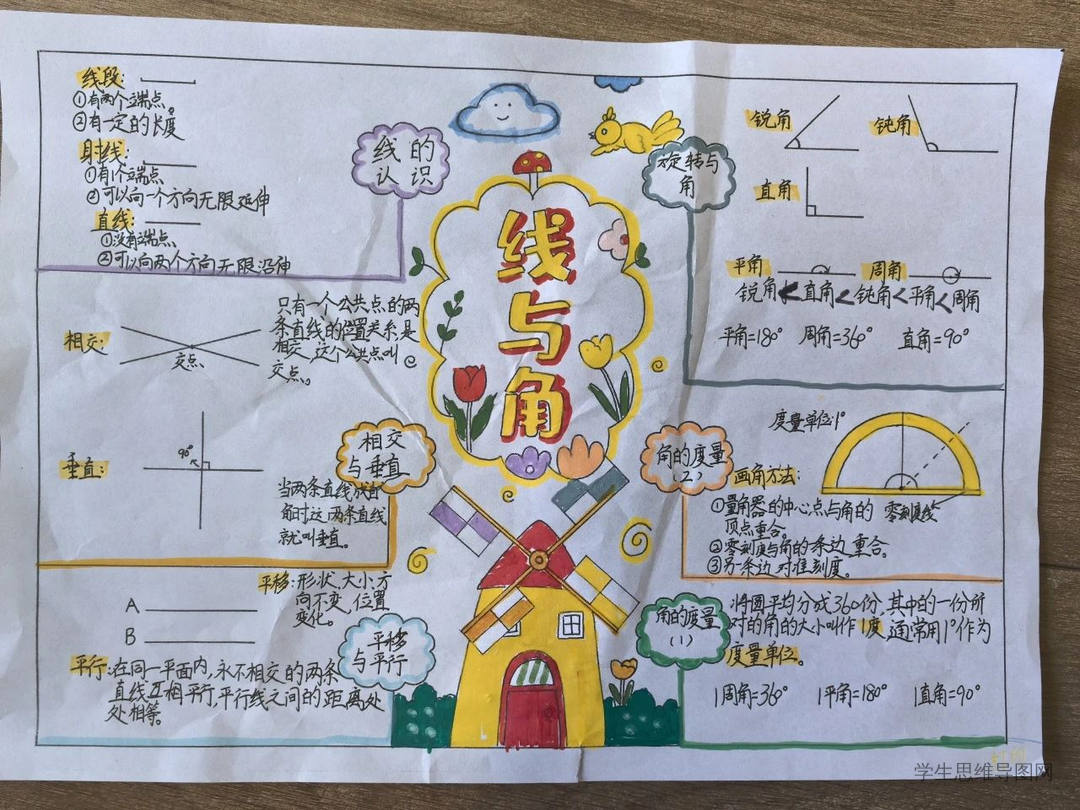 线与角
线的
认识
线段:
①有两个端点。
②有一定的长度
射线:
①有1个端点
②可以向一个方向无限延伸
直线:
①没有端点
②可以向两个方向无限沿伸
相交与垂直
相交:
交点
只有一个公共点的两
条直线的位置关系是
相交,这个公共点叫
交点。
垂直:
90°
当两条直线成直
角时这两条直线
就叫垂直。
平移与平行
平移:形状、大小、方
向不变,位置
变化。
A
B
平行:在同一平面内,永不相交的两条
直线互相平行,平行线之间的距离处
处相等。
旋转与
角
锐角
钝角
直角
平角
周角
锐角<直角<钝角<平角<周角
平角=180° 周角=360° 直角=90°
角的度量
(2)
度量单位:1°
画角方法:
①量角器的中心点与角的
顶点重合。
零刻度线
②零刻度与角的一条边重合。
③另一条边对准刻度。
角的度量
(1)
将圆平均分成360份,其中的一份所
对的角的大小叫作1度,通常用1°作为
度量单位。
1周角=360° 1平角=180° 1直角=90°
学生思维导图网